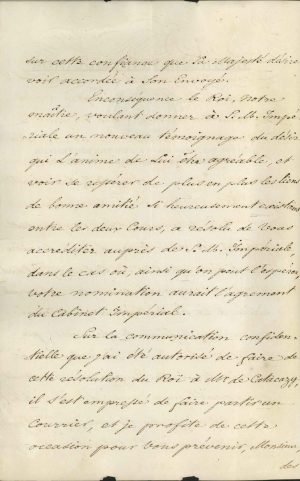 sur cette confiance que Sa Majesté désire
voir accordée à Son Envoyé.
Enconséquence le Roi, notre
maître, voulant donner à S. M. Impé-
riale un nouveau témoignage du désir
qui L'anime de Lui être agréable, et
voir se resserrer de plus en plus les liens
de bonne amitié si heureusement existans
entre les deux Cours, a résolu de Vous
accréditer auprès de S. M. Impériale
dans le cas où, ainsi qu'on peut l'espérer,
votre nomination aurait l'agrément
du Cabinet Impérial.
Sur la communication confiden-
tielle que j'ai été autorisé de faire de
cette résolution du Roi à Mr de Catacazy,
il s'est empressé de faire partir un
Courrier, et je profite de cette
occasion pour Vous prévenir, Monsieur,
des